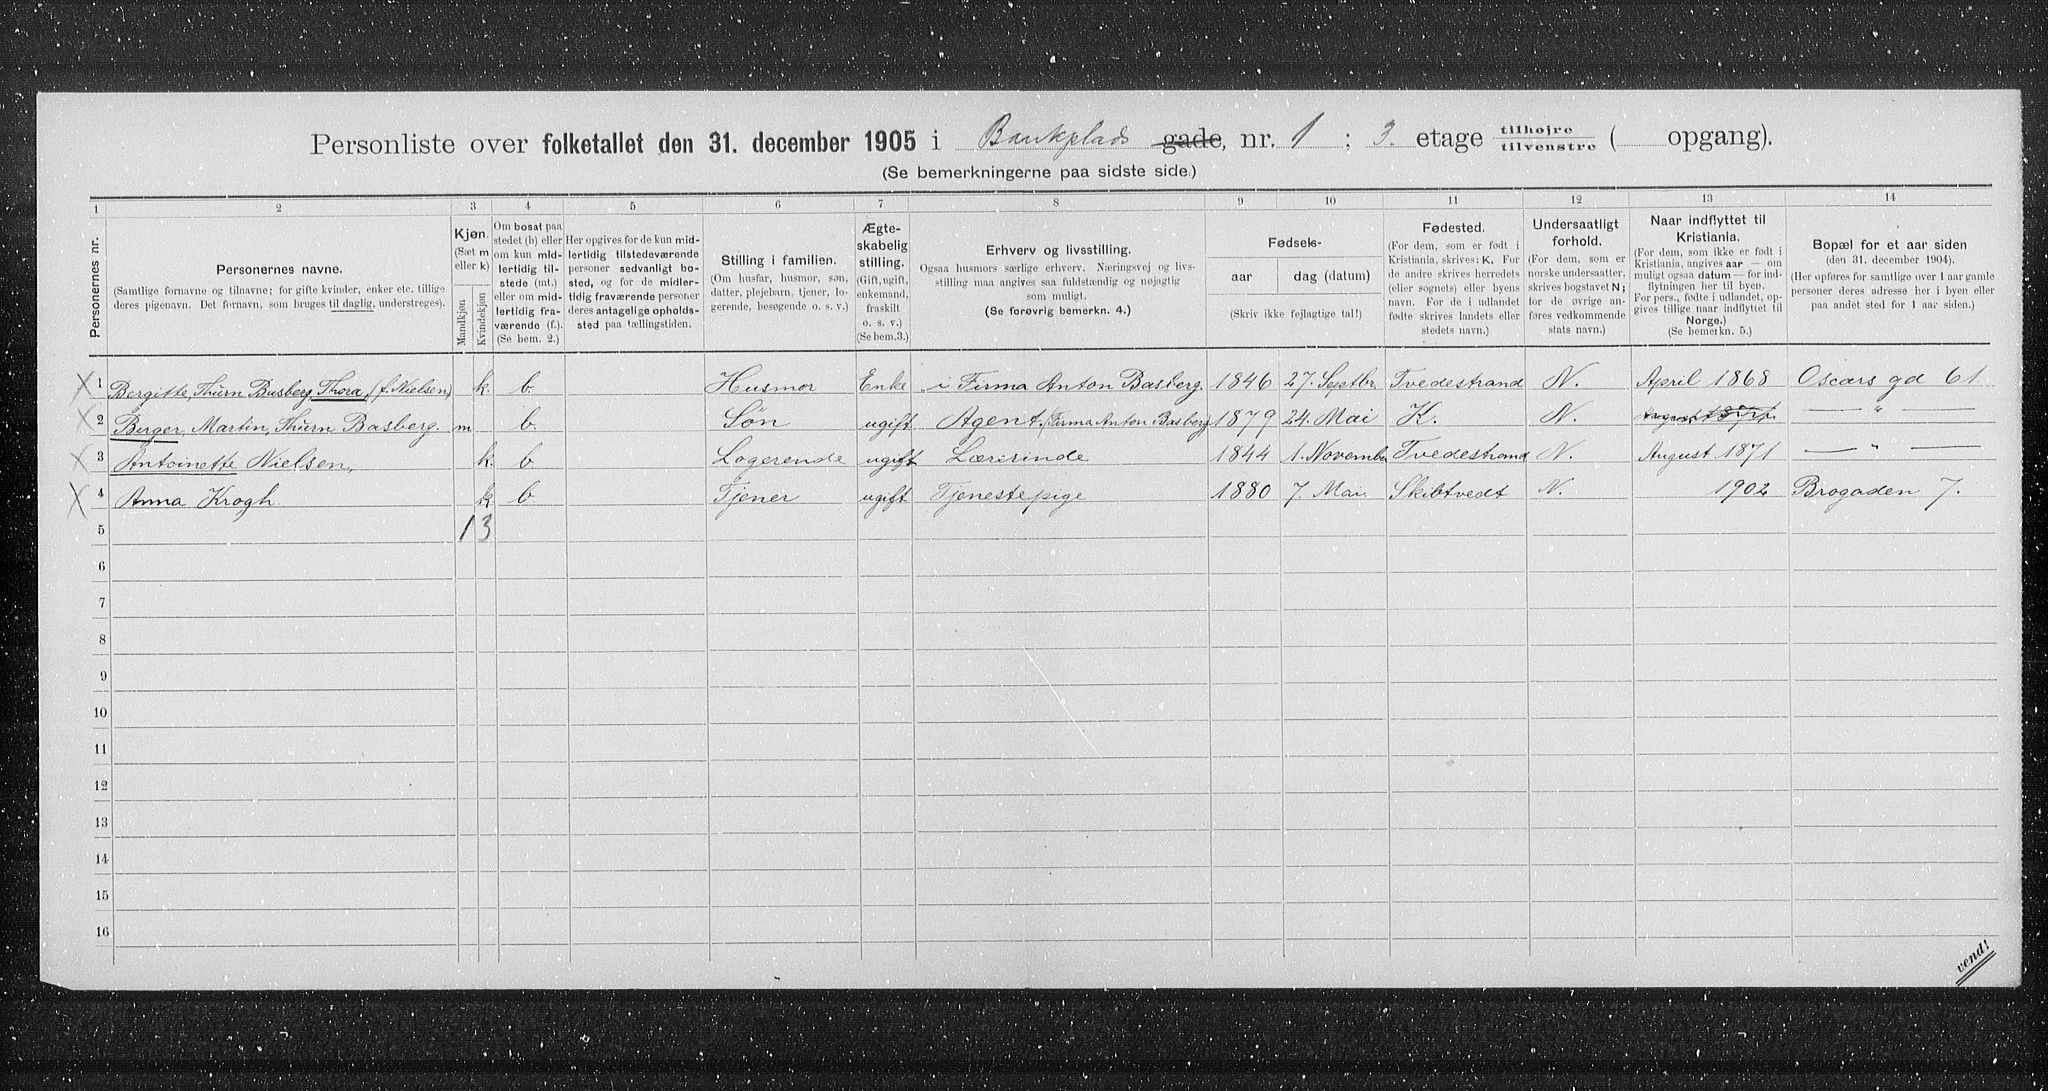 Personliste over folketallet den 31. december 1905 i Bankplads gade, nr. 1 ; 3. etage tilhøjre tilvenstre ( opgang).
(Se bemerkningerne paa sidste side.)
1 2 3 4 5 6 7 8 9 10 11 12 13 14
Personernes nr.
Personernes navne.
(Samtlige fornavne og tilnavne; for gifte kvinder, enker etc. tillige
deres pigenavn. Det fornavn, som bruges til daglig, understreges).
Kjøn.
(Sæt m
eller k)
Mandkjøn
Kvindekjøn
Om bosat paa
stedet (b) eller
om kun mid-
lertidig til-
stede (mt.)
eller om mid-
lertidig fra-
værende (f.).
(Se bem. 2.)
Her opgives for de kun mid-
lertidig tilstedeværende
personer sedvanligt bo-
sted, og for de midler-
tidig fraværende personer
deres antagelige opholds-
sted paa tællingstiden.
Stilling i familien.
(Om husfar, husmor, søn,
datter, plejebarn, tjener, lo-
gerende, besøgende o. s. v.)
Ægte-
skabelig
stilling.
(Gift, ugift,
enkemand,
fraskilt
o. s. v.)
(Se bem.3.)
Erhverv og livsstilling.
Ogsaa husmors særlige erhverv. Næringsvej og livs-
stilling maa angives saa fuldstændig og nøjagtig
som muligt.
(Se forøvrig bemerkn. 4.)
Fødsels-
aar
dag (datum)
(Skriv ikke fejlagtige tal!)
Fødested.
(For dem, som er født i
Kristiania, skrives: K. For
de andre skrives herredets
(eller sognets) eller byens
navn. For de i udlandet
fødte skrives landets eller
stedets navn.)
Undersaatligt
forhold.
(For dem, som er
norske undersaatter,
skrives bogstavet N;
for de øvrige an-
føres vedkommende
stats navn.)
Naar indflyttet til
Kristiania.
(For dem, som ikke er født i
Kristiania, angives aar — om
muligt ogsaa datum — for ind-
flytningen her til byen.
For pers., fødte i udlandet, op-
gives tillige naar indflyttet til
Norge.)
(Se bemerkn. 5.)
Bopæl for et aar siden
(den 31. december 1904).
(Her opføres for samtlige over 1 aar gamle
personer deres adresse her i byen eller
paa andet sted for 1 aar siden.)
1 Bergitte, Thurn Basberg, Thora, (f. Nielsen) k. b. Husmor Enke i Firma Anton Basberg. 1846 27. Septbr. Tvedestrand N. April 1868 Oscars gd 61
2 Birger, Martin, Thurn Basberg. m b. Søn ugift Agent. (Firma Anton Basberg) 1879 24. Mai K. N. — " —
3 Antoinette Nielsen, k. b. Logerende ugift Lærerinde 1844 1. November Tvedestrand N. August 1871 — " —
4 Anna Krogh. k b. Tjener ugift Tjenestepige 1880 7. Mai. Skibtvedt N. 1902 Brogaden 7.
5 1 3
6
7
8
9
10
11
12
13
14
15
16
vend!